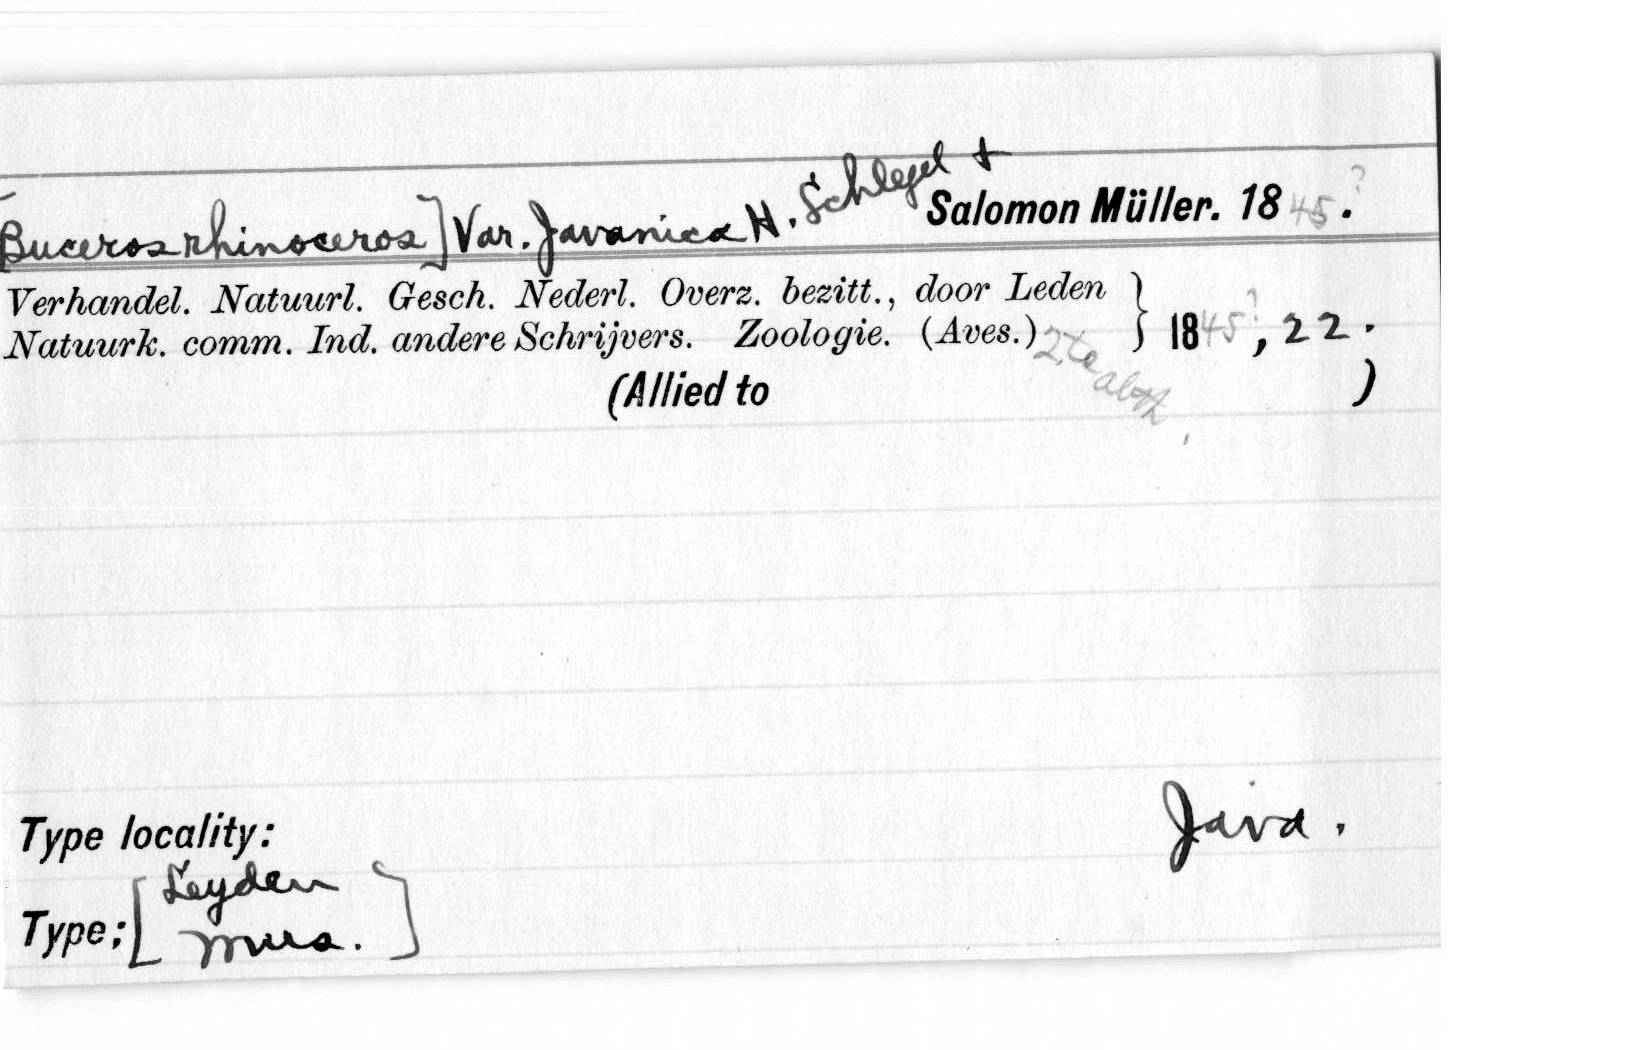 [Buceros rhinoceros] Var. Javanica H. Schlegel + Salomon Müller. 1845?.
Verhandel. Natuurl. Gesch. Nederl. Overz. bezitt., door Leden
Natuurk. comm. Ind. andere Schrijvers. Zoologie. (Aves.) } 1845?, 22.
(Allied to )
Type locality: Java.
Type; [Leyden
Mus.]